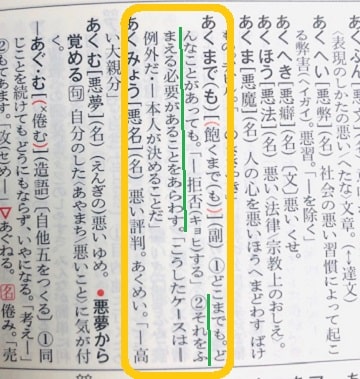 (表現のしかたの悪い、へたな)文章。(↑達文)
あくへい[悪弊](名)社会の悪い習慣によって起こ
る弊害(ヘイガイ)。悪習。「―を除く」
あくへき[悪癖](名)〔文〕悪いくせ。
あくほう[悪法](名)悪い〈法律・宗教上のおしえ〉。
あくま[悪魔](名)人の心を悪いほうへまどわすばけ
あくまで(も)[(飽くまで(も)](副)①どこまでも。ど
んなことがあっても。「―拒否(キョヒ)する」②それをふ
まえる必要があることをあらわす。「こうしたケースは―
例外だ・―本人が決めることだ」
あくみょう[悪名](名)悪い評判。あくめい。「―高
い大親分」
あくむ[悪夢](名)〔えんぎの〕悪いゆめ。●悪夢から
覚める句 自分のした〈あやまち/悪いこと〉に気が付
―あぐ・む[(×倦む)](造語)〔自他五をつくる〕①同
じことを続けても どうにもならず、いやになる。「考え―」
②もてあます。「攻(セ)め―」▽あぐねる。名 倦み。「売